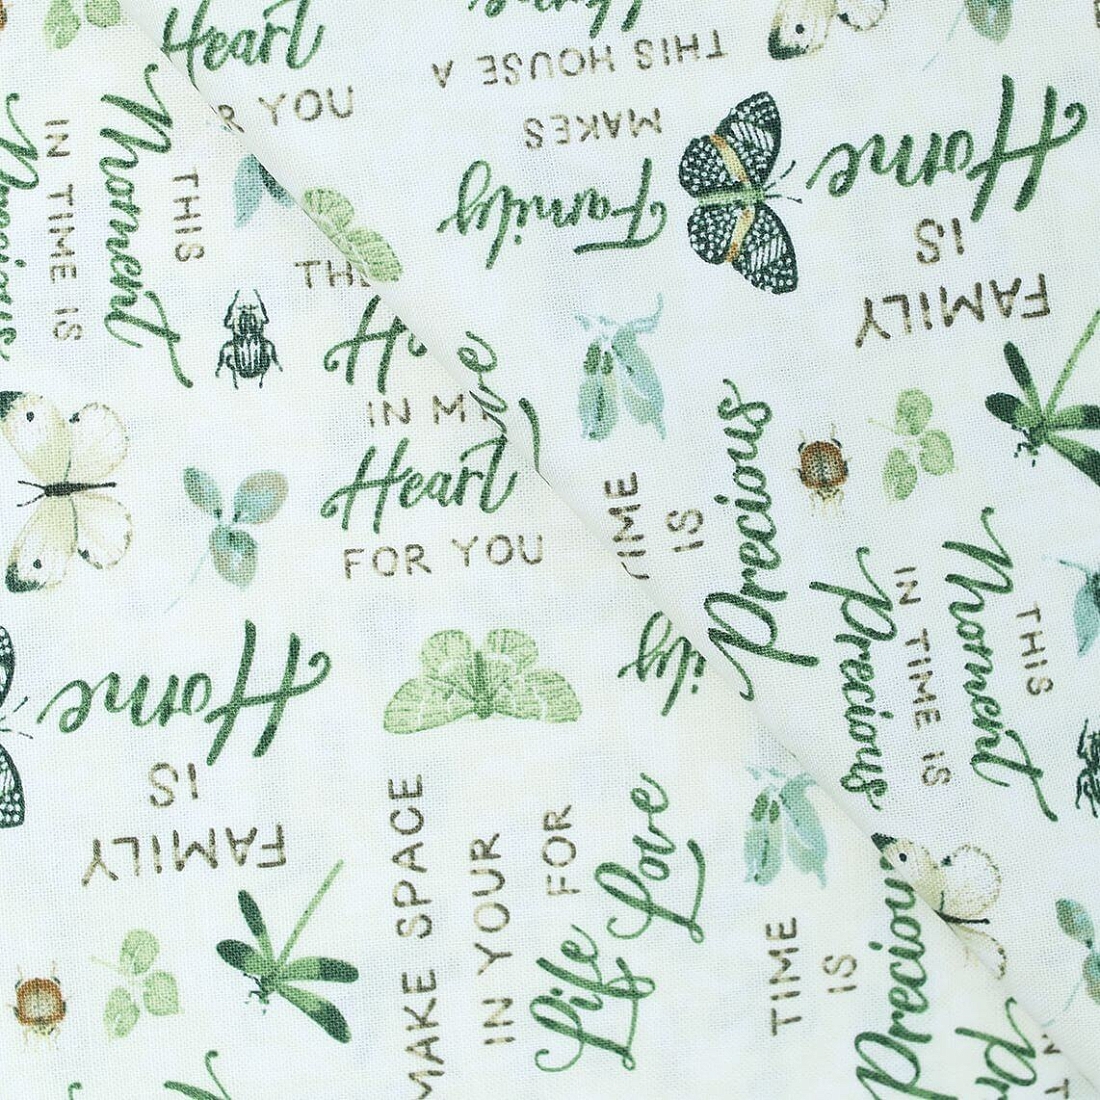 Heart
& YOU
THIS HOUSE A
MAKES
Family
Home
IS
FAMILY
THIS
Moment
IN TIME IS
Precious
IN MY
Heart
FOR YOU
TIME
IS
Precious
THIS
Moment
IN TIME IS
Precious
Home
IS
FAMILY
MAKE SPACE
IN YOUR
Life
FOR
Love
TIME
IS
Precious